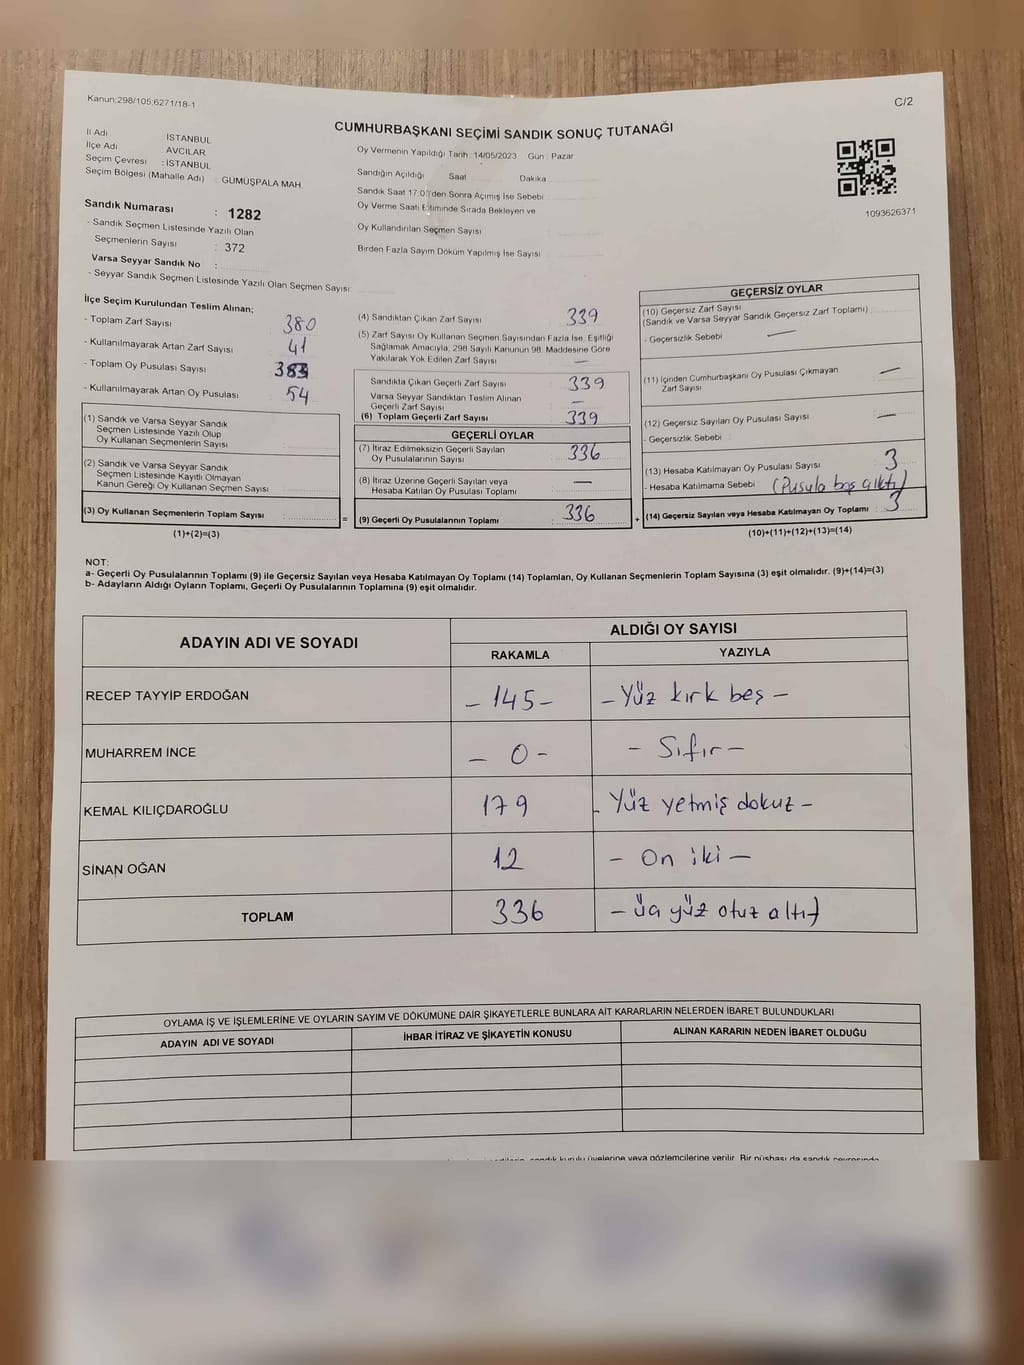 Kanun;298/105;6271/18-1
C/2
CUMHURBAŞKANI SEÇİMİ SANDIK SONUÇ TUTANAĞI
İl Adı : İSTANBUL
İlçe Adı : AVCILAR
Seçim Çevresi : İSTANBUL
Seçim Bölgesi (Mahalle Adı) : GÜMÜŞPALA MAH.
Oy Vermenin Yapıldığı Tarih : 14/05/2023 Gün : Pazar
Sandığın Açıldığı Saat Dakika
Sandık Saat 17:0 'den Sonra Açımış İse Sebebi
Oy Verme Saati Bitiminde Sırada Bekleyen ve
Oy Kullandırılan Seçmen Sayısı
Birden Fazla Sayım Döküm Yapılmış İse Sayısı
1093626371
Sandık Numarası : 1282
- Sandık Seçmen Listesinde Yazılı Olan
Seçmenlerin Sayısı : 372
Varsa Seyyar Sandık No :
- Seyyar Sandık Seçmen Listesinde Yazılı Olan Seçmen Sayısı
İlçe Seçim Kurulundan Teslim Alınan;
- Toplam Zarf Sayısı 380
- Kullanılmayarak Artan Zarf Sayısı 41
- Toplam Oy Pusulası Sayısı 383
- Kullanılmayarak Artan Oy Pusulası 54
(1) Sandık ve Varsa Seyyar Sandık
Seçmen Listesinde Yazılı Olup
Oy Kullanan Seçmenlerin Sayısı
(2) Sandık ve Varsa Seyyar Sandık
Seçmen Listesinde Kayıtlı Olmayan
Kanun Gereği Oy Kullanan Seçmen Sayısı
(3) Oy Kullanan Seçmenlerin Toplam Sayısı
(1)+(2)=(3)
=
(4) Sandıktan Çıkan Zarf Sayısı 339
(5) Zarf Sayısı Oy Kullanan Seçmen Sayısından Fazla İse, Eşitliği
Sağlamak Amacıyla, 298 Sayılı Kanunun 98. Maddesine Göre
Yakılarak Yok Edilen Zarf Sayısı —
Sandıkta Çıkan Geçerli Zarf Sayısı 339
Varsa Seyyar Sandıktan Teslim Alınan
Geçerli Zarf Sayısı —
(6) Toplam Geçerli Zarf Sayısı 339
GEÇERLİ OYLAR
(7) İtiraz Edilmeksizin Geçerli Sayılan
Oy Pusulalarının Sayısı 336
(8) İtiraz Üzerine Geçerli Sayılan veya
Hesaba Katılan Oy Pusulası Toplamı —
(9) Geçerli Oy Pusulalarının Toplamı 336
+
GEÇERSİZ OYLAR
(10) Geçersiz Zarf Sayısı
(Sandık ve Varsa Seyyar Sandık Geçersiz Zarf Toplamı)
- Geçersizlik Sebebi —
(11) İçinden Cumhurbaşkanı Oy Pusulası Çıkmayan
Zarf Sayısı —
(12) Geçersiz Sayılan Oy Pusulası Sayısı —
- Geçersizlik Sebebi
(13) Hesaba Katılmayan Oy Pusulası Sayısı 3
- Hesaba Katılmama Sebebi (Pusula boş çıktı)
(14) Geçersiz Sayılan veya Hesaba Katılmayan Oy Toplamı : 3
(10)+(11)+(12)+(13)=(14)
NOT:
a- Geçerli Oy Pusulalarının Toplamı (9) ile Geçersiz Sayılan veya Hesaba Katılmayan Oy Toplamı (14) Toplamları, Oy Kullanan Seçmenlerin Toplam Sayısına (3) eşit olmalıdır. (9)+(14)=(3)
b- Adayların Aldığı Oyların Toplamı, Geçerli Oy Pusulalarının Toplamına (9) eşit olmalıdır.
ADAYIN ADI VE SOYADI
ALDIĞI OY SAYISI
RAKAMLA YAZIYLA
RECEP TAYYİP ERDOĞAN - 145 - - Yüz kırk beş -
MUHARREM İNCE - 0 - - Sıfır -
KEMAL KILIÇDAROĞLU 179 - Yüz yetmiş dokuz -
SİNAN OĞAN 12 - On iki -
TOPLAM 336 - üç yüz otuz altı
OYLAMA İŞ VE İŞLEMLERİNE VE OYLARIN SAYIM VE DÖKÜMÜNE DAİR ŞİKAYETLERLE BUNLARA AİT KARARLARIN NELERDEN İBARET BULUNDUKLARI
ADAYIN ADI VE SOYADI İHBAR İTİRAZ VE ŞİKAYETİN KONUSU ALINAN KARARIN NEDEN İBARET OLDUĞU
sandık kurulu üyelerine veya gözlemcilerine verilir. Bir nüshası da sandık çevresinde